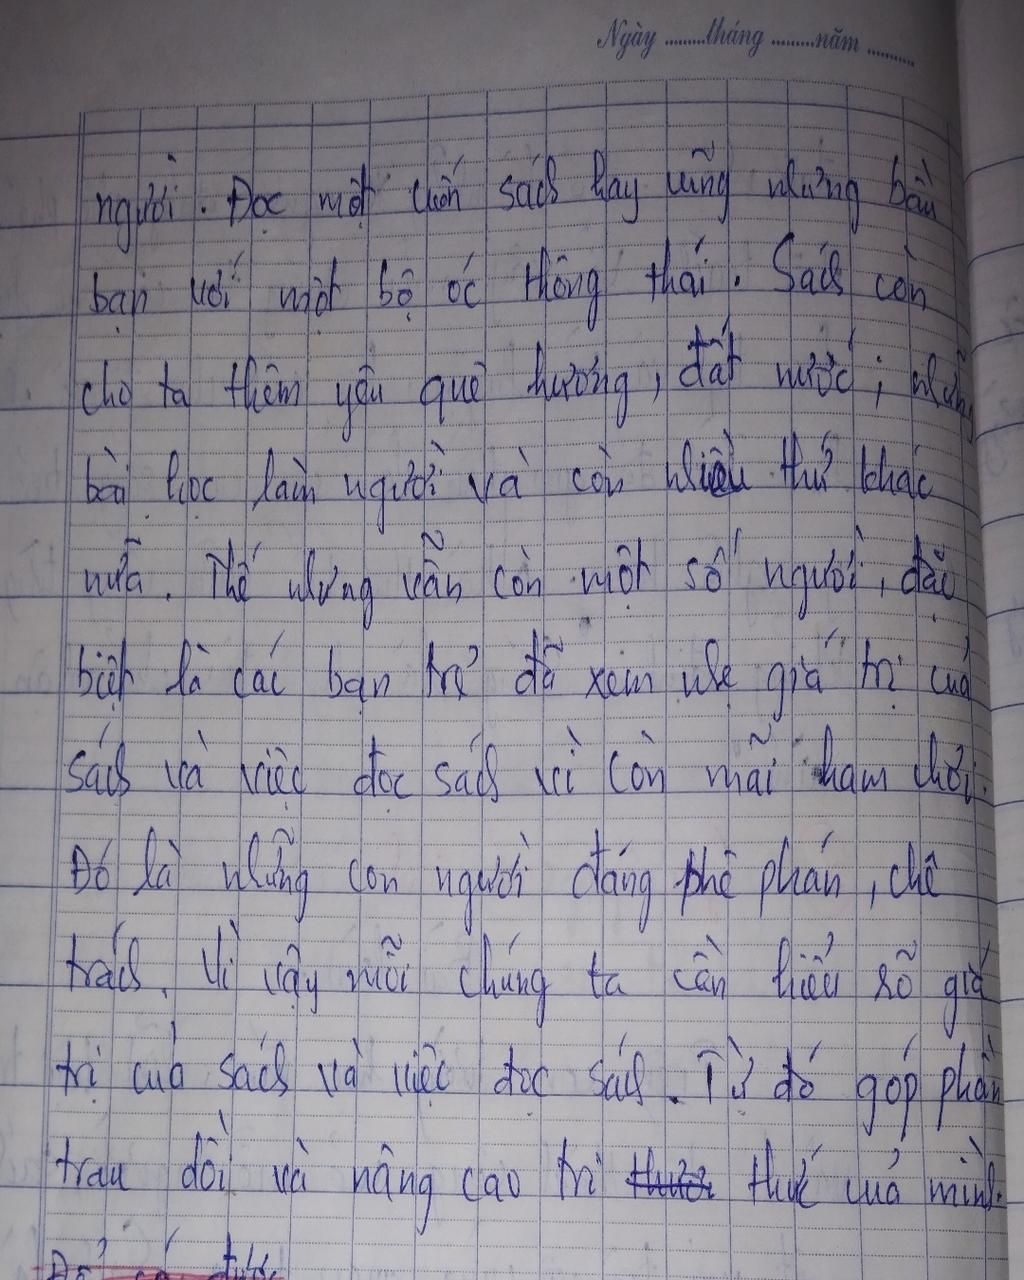 Ngày ........tháng ........năm ........
người. Đọc một cuốn sách hay cũng những bần
bạn với một bộ óc thông thái. Sách còn
cho ta thêm yêu quê hương, đất nước; những
bài học làm người và còn nhiều thứ khác
nữa. Thế nhưng vẫn còn một số người, đặc
biệt là các bạn trẻ đã xem nhẹ giá trị của
sách và việc đọc sách vì còn mãi ham chơi.
Đó là những con người đáng phê phán, chê
trách. Vì vậy mỗi chúng ta cần hiểu rõ giá
trị của sách và việc đọc sách. Từ đó góp phần
trau dồi và nâng cao tri thức của mình.